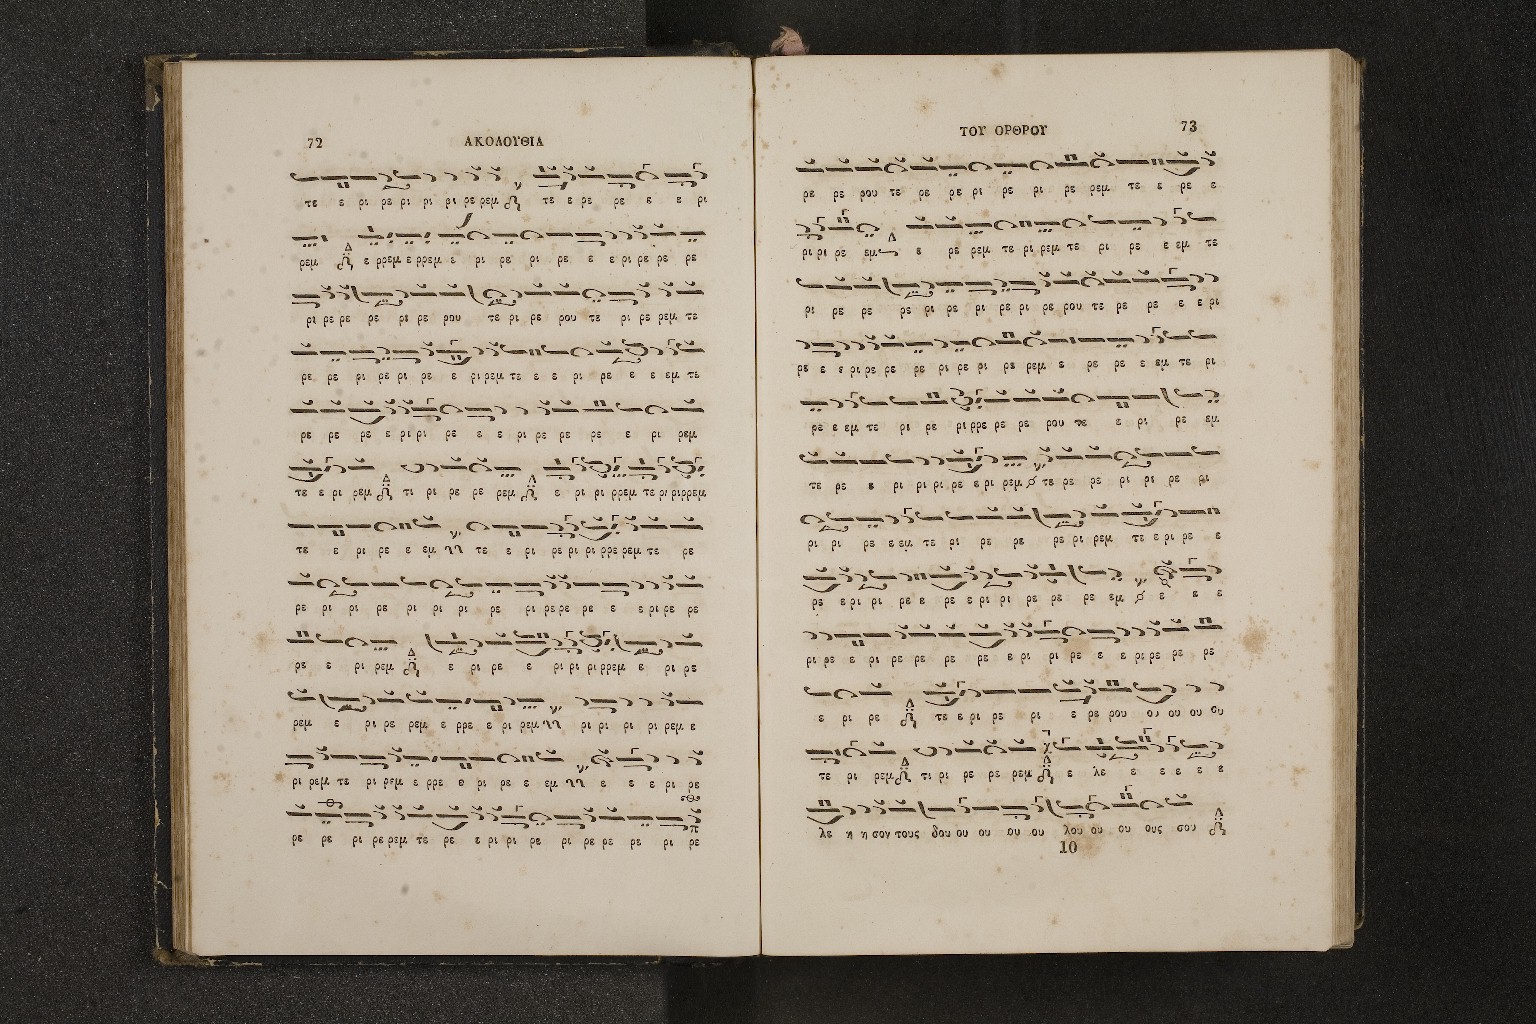 72 ΑΚΟΛΟΥΘΙΑ
τε ε ρι ρε ρι ρι ρι ρε ρεμ τε ε ρε ρε ε ε ρι
ρεμ ε ρρεμ ε ρρεμ ε ρι ρε ρι ρε ε ε ρι ρε ρε ρε
ρι ρε ρε ρε ρι ρε ρου τε ρι ρε ρου τε ρι ρε ρεμ τε
ρε ρε ρι ρε ρι ρε ε ρι ρεμ τε ε ε ρι ρε ε ε εμ τε
ρε ρε ρε ε ρι ρι ρε ε ε ρι ρε ρε ρε ε ρι ρεμ
τε ε ρι ρεμ τι ρι ρε ρε ρεμ ε ρι ρι ρρεμ τε ρι ριρρεμ
τε ε ρι ρε ε εμ τε ε ρι ρε ρι ρι ρρε ρεμ τε ρε
ρε ρι ρι ρε ρι ρι ρι ρε ρι ρε ρε ρε ε ε ρι ρε ρε
ρε ε ρι ρεμ ε ρι ρε ε ρι ρι ρι ρρεμ ε ρι ρε
ρεμ ε ρι ρε ρεμ ε ρρε ε ρι ρεμ ρι ρι ρι ρι ρεμ ε
ρι ρεμ τε ρι ρεμ ε ρρε ε ρι ρε ε εμ ε ε ε ρι ρε
ρε ρε ρι ρε ρεμ τε ρε ε ρι ρι ρε ρι ρε ρε ρε ρι ρε
ΤΟΥ ΟΡΘΡΟΥ 73
ρε ρε ρου τε ρε ρε ρι ρε ρι ρε ρεμ τε ε ρε ε
ρι ρι ρε εμ ε ρε ρεμ τε ρι ρεμ τε ρι ρε ε εμ τε
ρι ρε ρε ρε ρι ρε ρι ρε ρι ρε ρου τε ρε ρε ε ε ρι
ρε ε ε ρι ρε ρε ρε ρι ρε ρι ρε ρεμ ε ρε ρε ε εμ τε ρι
ρε ε εμ τε ρι ρε ρι ρρε ρε ρε ρου τε ε ρι ρε εμ
τε ρε ε ρι ρι ρι ρε ε ρι ρεμ τε ρε ρε ρι ρι ρε ρι
ρι ρι ρε ε εμ τε ρι ρε ρε ρε ρι ρεμ τε ε ρι ρε ε
ρε ε ρι ρι ρε ε ρε ε ρι ρι ρε ρε ρε εμ ε ε ε
ρι ρε ε ρι ρε ρε ρε ρε ε ρι ρι ρε ε ε ρι ρε ρε ρε
ε ρι ρε τε ε ρι ρε ρι ε ρε ρου ου ου ου ου
τε ρι ρεμ τι ρι ρε ρε ρεμ ε λε ε ε ε ε ε
λε η η σον τους δου ου ου ου ου λου ου ου ους σου
10